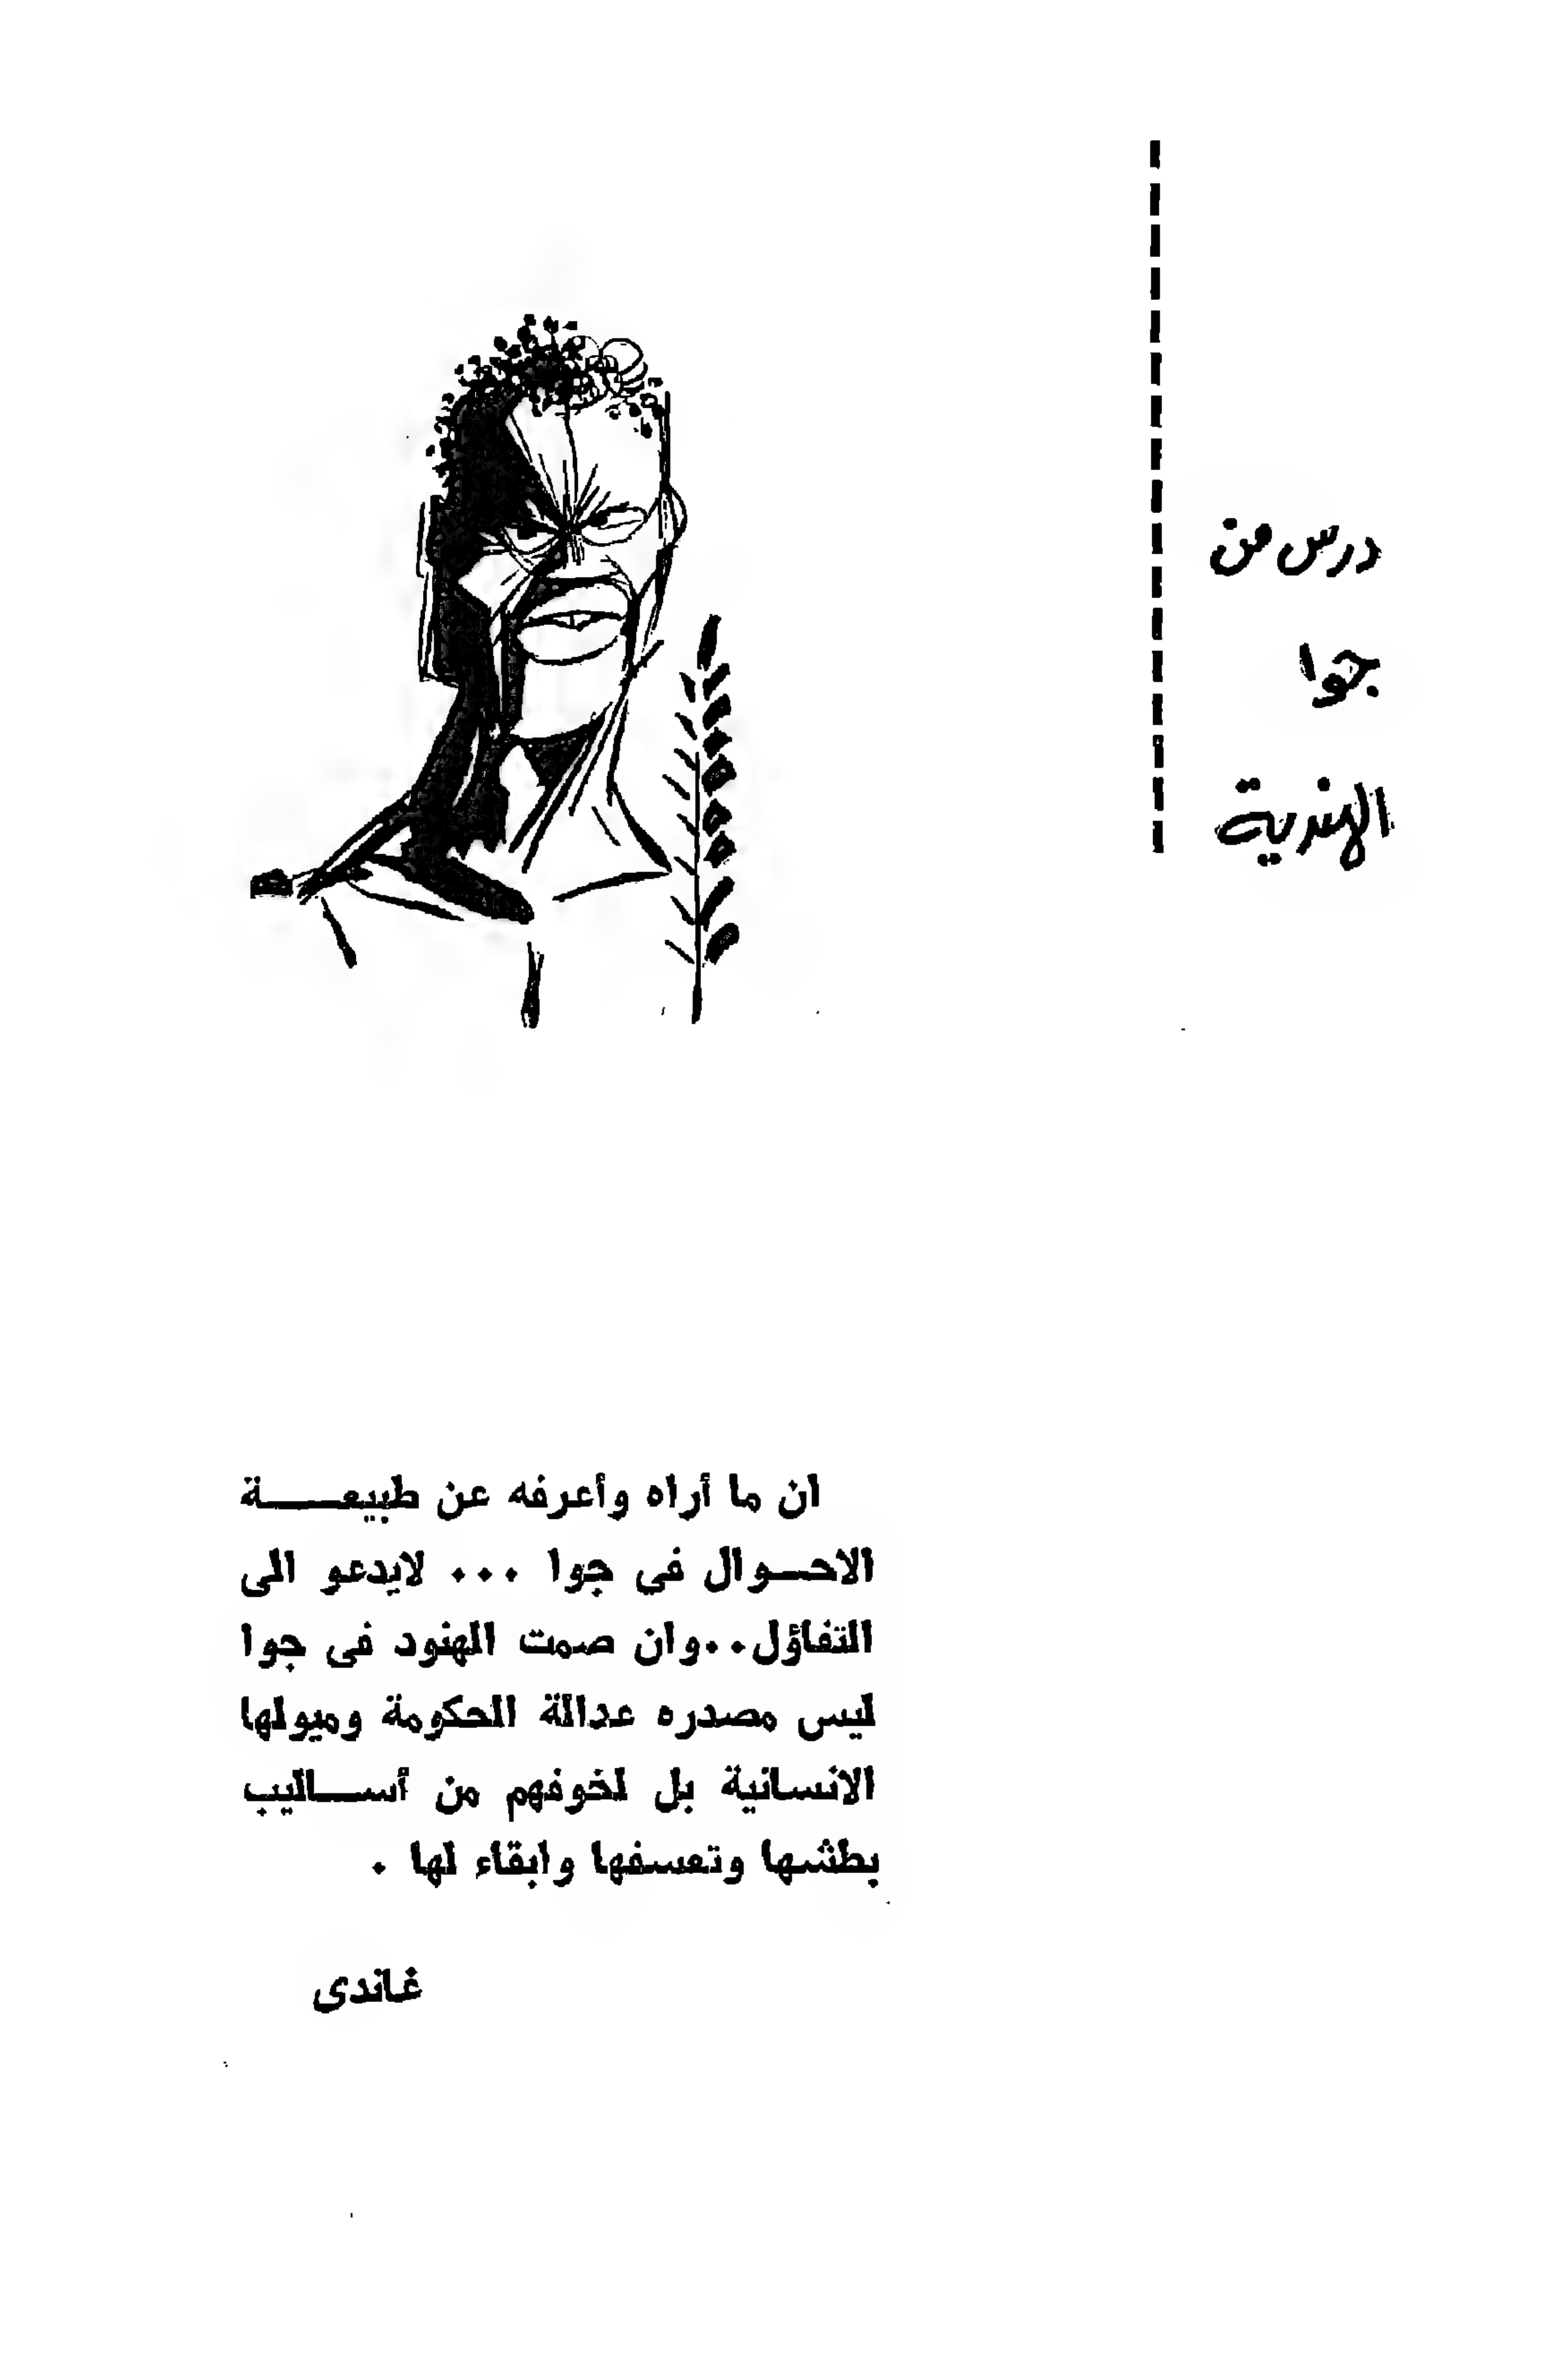 درس من
جوا
الهندية
ان ما أراه وأعرفه عن طبيعـــة
الاحـوال في جوا ... لايدعو الى
التفاؤل..وان صمت الهنود فى جوا
ليس مصدره عدالة الحكومة وميولها
الانسانية بل لخوفهم من أسـاليب
بطشها وتعسفها وابقاء لها .
غاندى